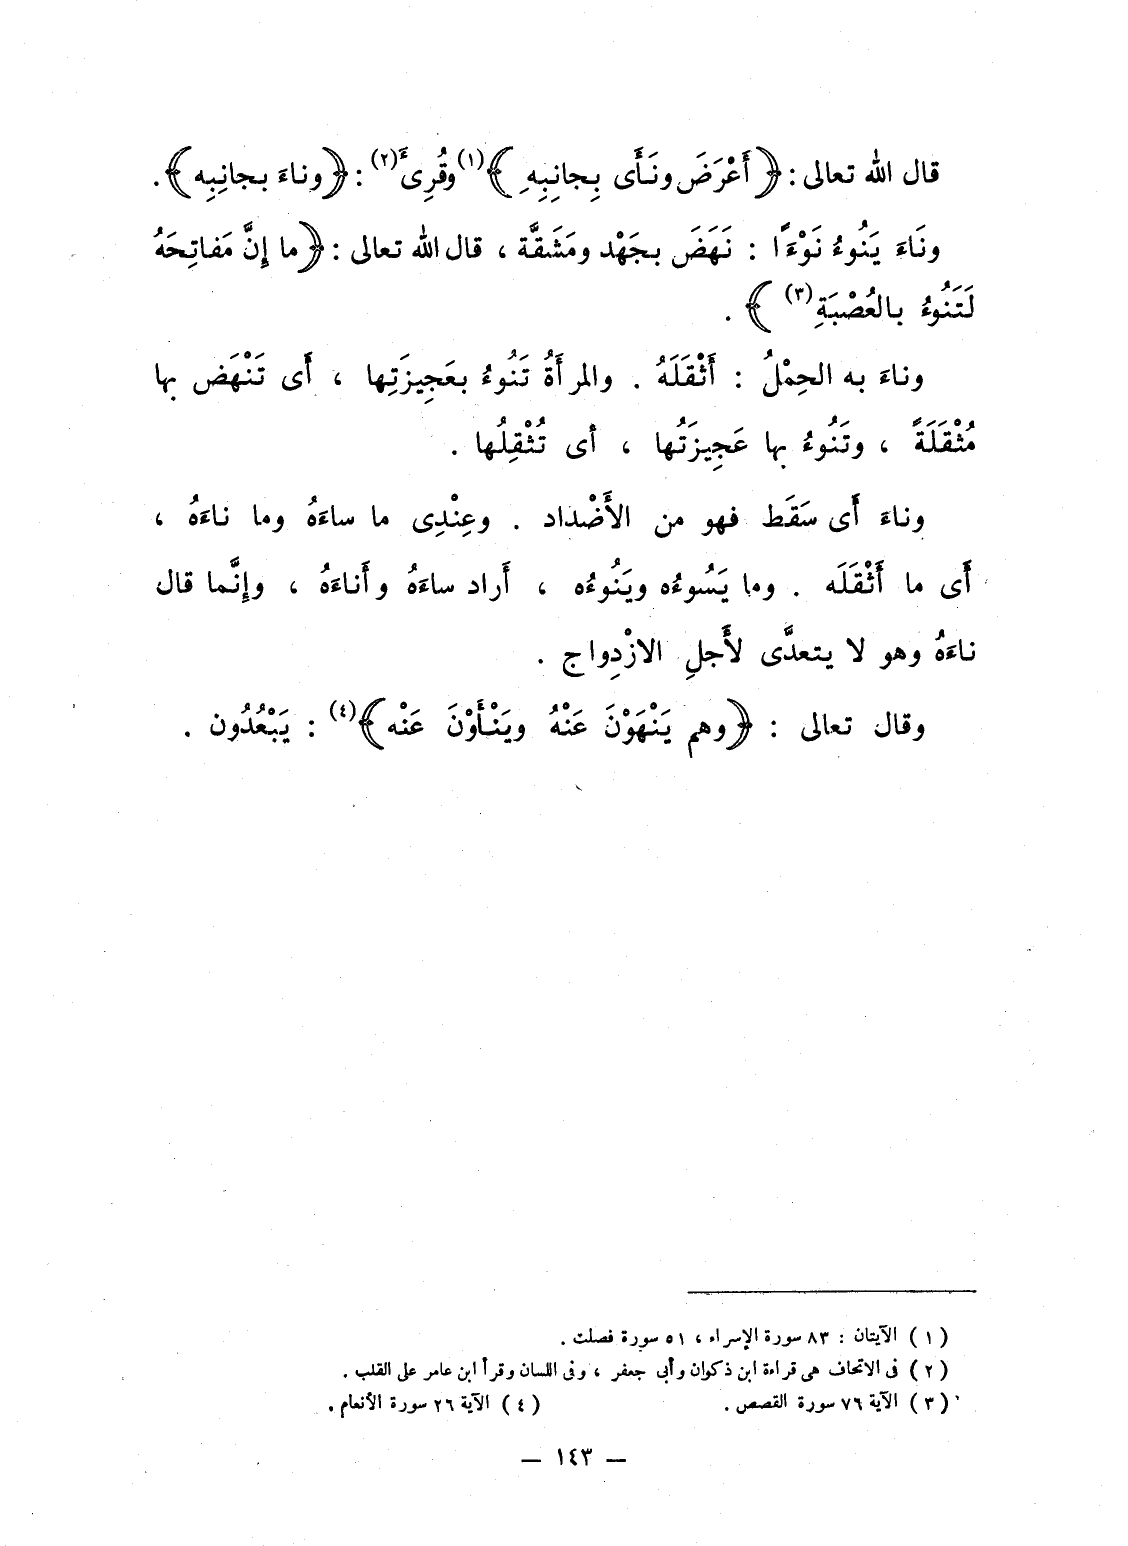 قال الله تعالى : ﴿أَعْرَضَ ونَـأَى بِجانِبِهِ﴾(١) وقُرِئَ(٢) : ﴿وناءَ بجانِبِه﴾ .
ونَاءَ يَنُوءُ نَوْءًا : نَهَضَ بجَهْد ومَشَقَّة ، قال الله تعالى : ﴿ما إِنَّ مَفاتِحَهُ
لَتَنُوءُ بالعُصْبَةِ(٣)﴾ .
وناءَ به الحِمْلُ : أَثْقَلَهُ . والمرأَةُ تَنُوءُ بعَجِيزَتِها ، أَى تَنْهَض بها
مُثْقَلَةً ، وتَنُوءُ بها عَجِيزَتُها ، أى تُثْقِلُها .
وناءَ أَى سَقَط فهو من الأَضْداد . وعِنْدِى ما ساءَهُ وما ناءَهُ ،
أَى ما أَثْقَلَه . وما يَسُوءُه ويَنُوءُه ، أَراد ساءَهُ وأَناءَهُ ، وإِنَّما قال
ناءَهُ وهو لا يتعدَّى لأَجلِ الازْدِواج .
وقال تعالى : ﴿وهم يَنْهَوْنَ عَنْهُ ويَنْـأَوْنَ عَنْه﴾(٤) : يَبْعُدُون .
(١) الآيتان : ٨٣ سورة الإسراء ، ٥١ سورة فصلت .
(٢) فى الاتحاف هى قراءة ابن ذكوان وأبى جعفر ، وفى اللسان وقرأ ابن عامر على القلب .
(٣) الآية ٧٦ سورة القصص . (٤) الآية ٢٦ سورة الأنعام .
— ١٤٣ —